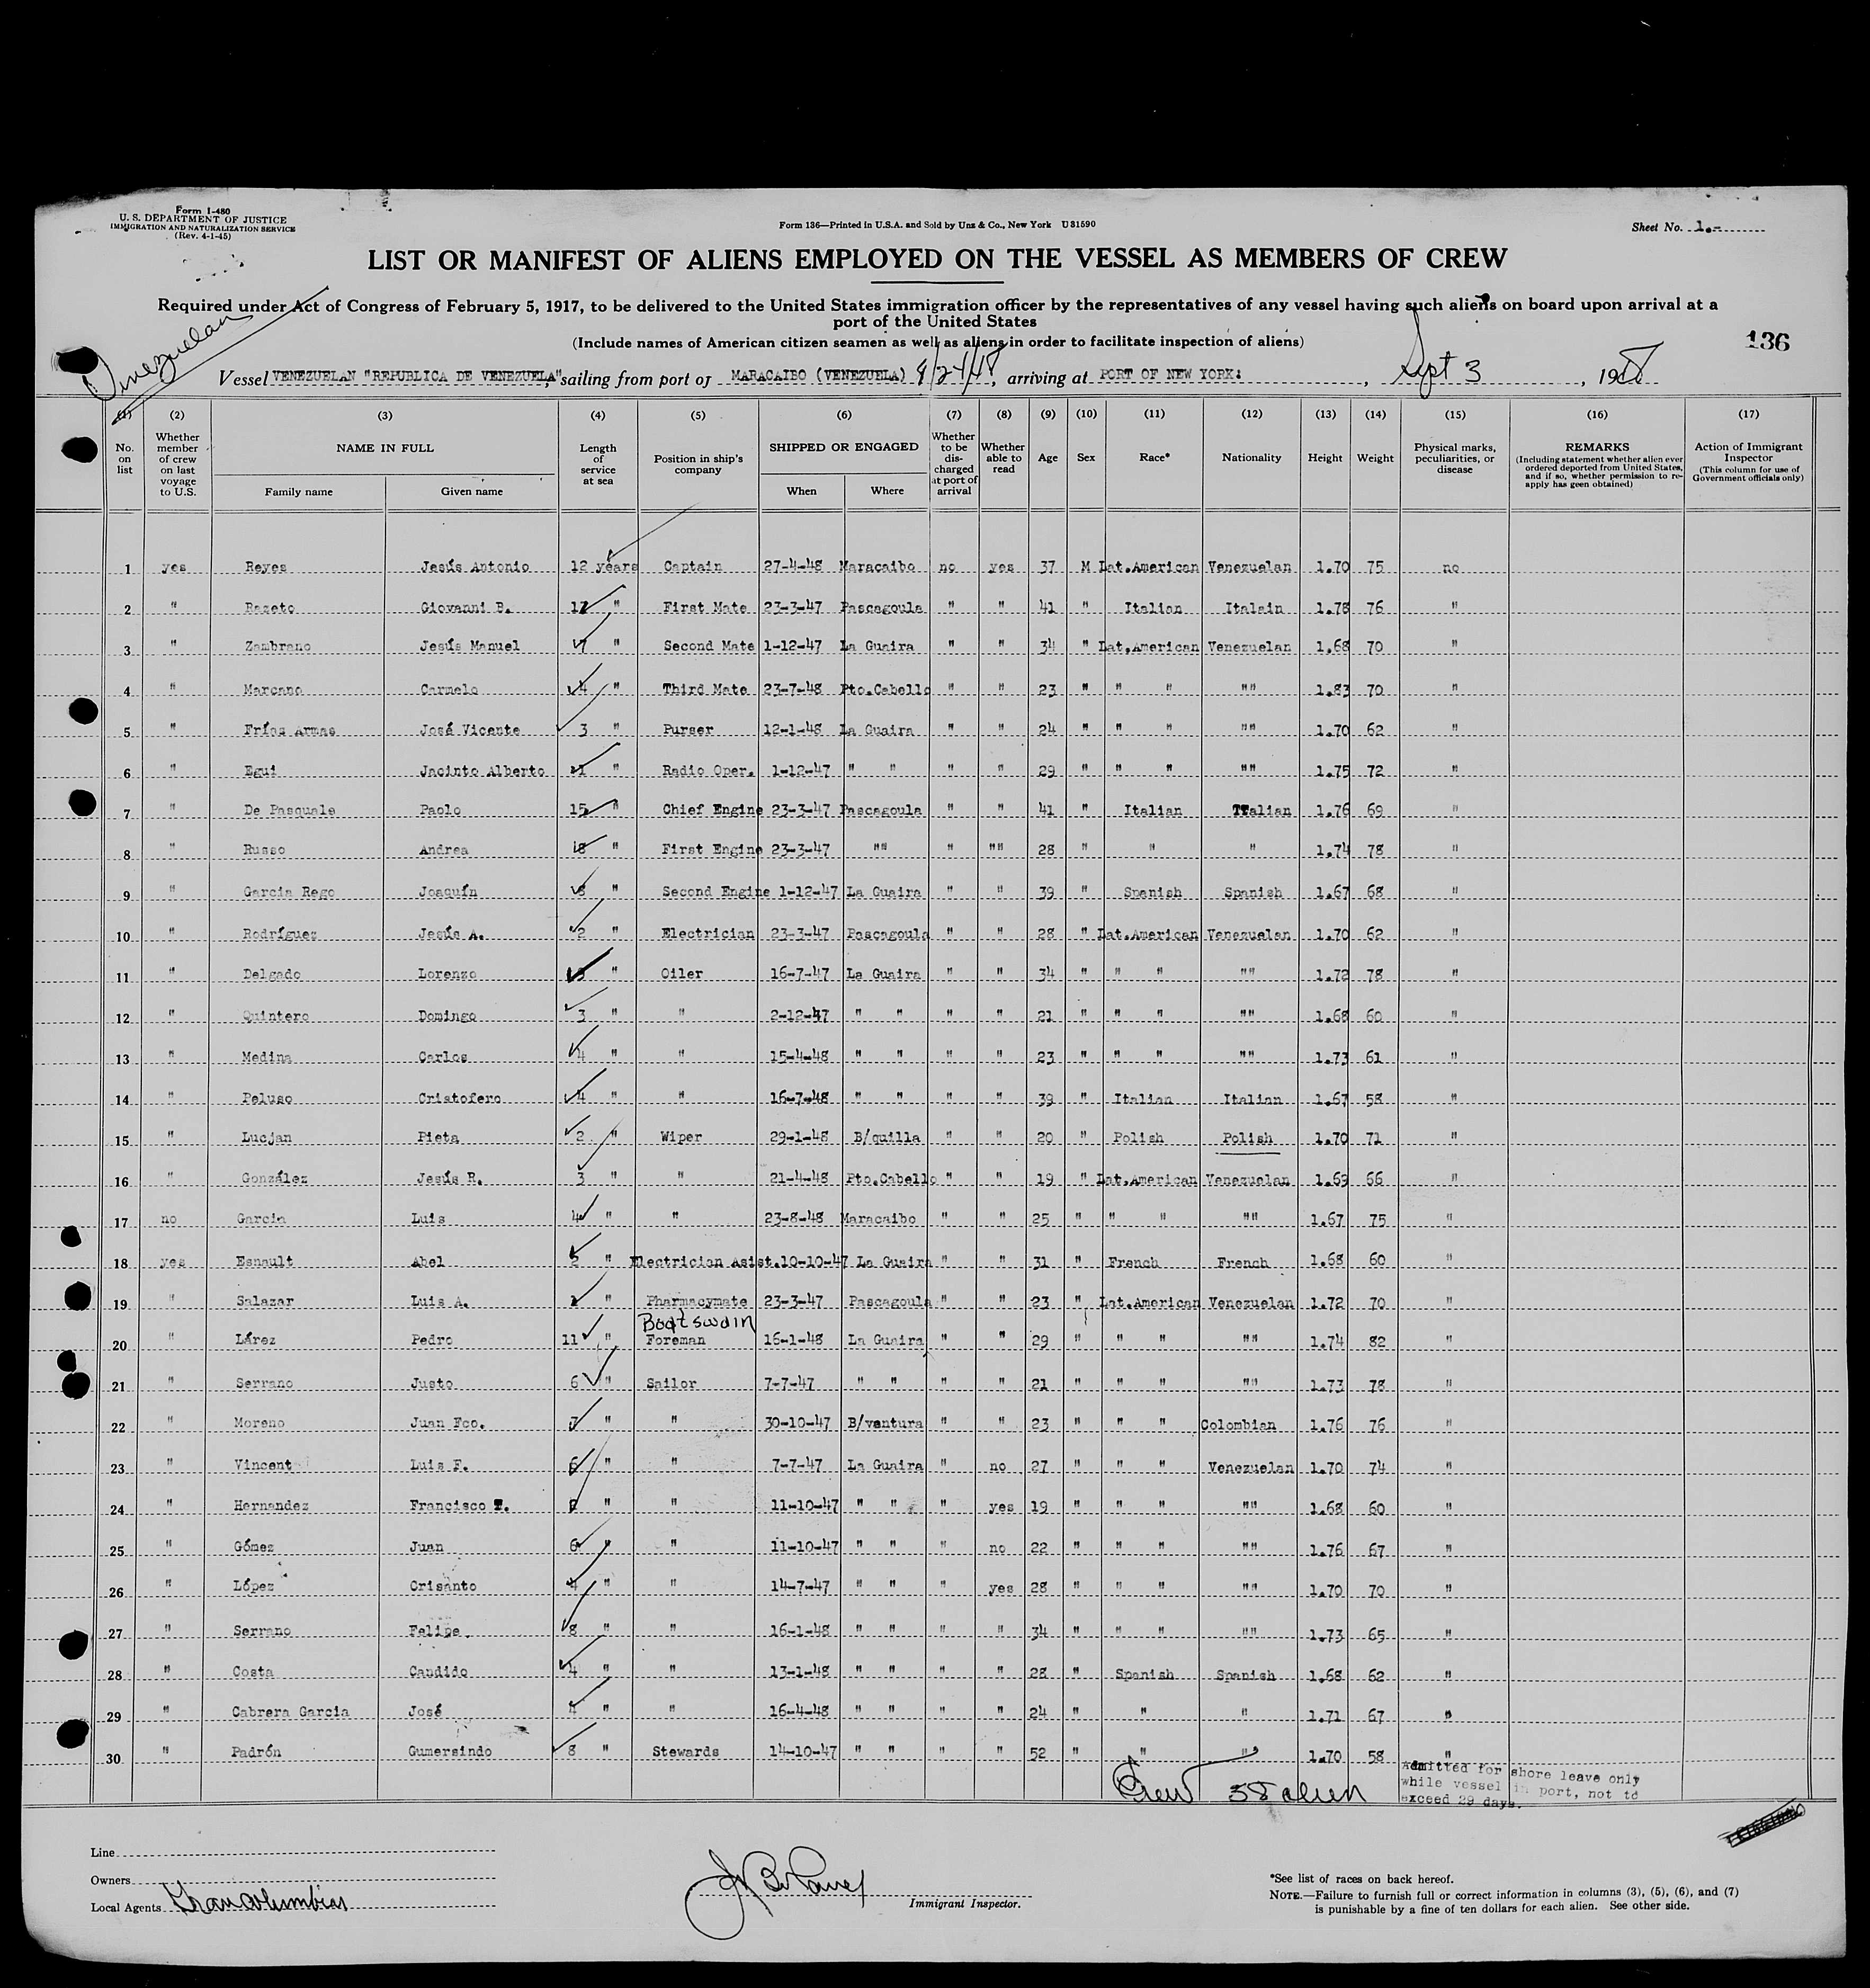 Form I-480
U. S. DEPARTMENT OF JUSTICE
IMMIGRATION AND NATURALIZATION SERVICE
(Rev. 4-1-45)
Form 136—Printed in U.S.A. and Sold by Unz & Co., New York U31590
Sheet No. 1.-
LIST OR MANIFEST OF ALIENS EMPLOYED ON THE VESSEL AS MEMBERS OF CREW
Required under Act of Congress of February 5, 1917, to be delivered to the United States immigration officer by the representatives of any vessel having such aliens on board upon arrival at a
port of the United States
(Include names of American citizen seamen as well as aliens in order to facilitate inspection of aliens)
136
Venezuelan
Vessel VENEZUELAN "REPUBLICA DE VENEZUELA" sailing from port of MARACAIBO (VENEZUELA) 8/24/48, arriving at PORT OF NEW YORK: , Sept 3, 1948
(1) (2) (3) (4) (5) (6) (7) (8) (9) (10) (11) (12) (13) (14) (15) (16) (17)
No. on list
Whether member of crew on last voyage to U.S.
NAME IN FULL
Family name
Given name
Length of service at sea
Position in ship's company
SHIPPED OR ENGAGED
When
Where
Whether to be discharged at port of arrival
Whether able to read
Age
Sex
Race*
Nationality
Height
Weight
Physical marks, peculiarities, or disease
REMARKS
(Including statement whether alien ever ordered deported from United States, and if so, whether permission to reapply has geen obtained)
Action of Immigrant Inspector
(This column for use of Government officials only)
1 yes Reyes Jesús Antonio 12 years Captain 27-4-48 Maracaibo no yes 37 M Lat.American Venezuelan 1.70 75 no
2 " Razeto Giovanni B. " First Mate 23-3-47 Pascagoula " " 41 " Italian Italain 1.78 76 "
3 " Zambrano Jesús Manuel 7 " Second Mate 1-12-47 La Guaira " " 34 " Lat.American Venezuelan 1.68 70 "
4 " Marcano Carmelo 4 " Third Mate 23-7-48 Pto.Cabello " " 23 " " " "" 1.83 70 "
5 " Frías Armas José Vicente 3 " Purser 12-1-48 La Guaira " " 24 " " " "" 1.70 62 "
6 " Egui Jacinto Alberto " Radio Oper. 1-12-47 " " " " 29 " " " "" 1.75 72 "
7 " De Pasquale Paolo 15 " Chief Engine 23-3-47 Pascagoula " " 41 " Italian ITalian 1.76 69 "
8 " Russo Andrea 8 " First Engine 23-3-47 "" " "" 28 " " " 1.74 78 "
9 " Garcia Rego Joaquín 8 " Second Engine 1-12-47 La Guaira " " 39 " Spanish Spanish 1.67 68 "
10 " Rodríguez Jesús A. 2 " Electrician 23-3-47 Pascagoula " " 28 " Lat.American Venezuelan 1.70 62 "
11 " Delgado Lorenzo " Oiler 16-7-47 La Guaira " " 34 " " " "" 1.72 78 "
12 " Quintero Domingo 3 " " 2-12-47 " " " " 21 " " " "" 1.68 60 "
13 " Medina Carlos 4 " " 15-4-48 " " " " 23 " " " "" 1.73 61 "
14 " Peluso Cristofero 4 " " 16-7-48 " " " " 39 " Italian Italian 1.67 58 "
15 " Lucjan Pieta 2 " Wiper 29-1-48 B/quilla " " 20 " Polish Polish 1.70 71 "
16 " González Jesús R. 3 " " 21-4-48 Pto.Cabello " " 19 " Lat.American Venezuelan 1.69 66 "
17 no Garcia Luis 4 " " 23-8-48 Maracaibo " " 25 " " " "" 1.67 75 "
18 yes Esnault Abel 2 " Electrician Asist. 10-10-47 La Guaira " " 31 " French French 1.68 60 "
19 " Salazar Luis A. " Pharmacymate 23-3-47 Pascagoula " " 23 " Lat.American Venezuelan 1.72 70 "
Boatswain
20 " Lárez Pedro 11 " Foreman 16-1-48 La Guaira " " 29 " " " "" 1.74 82 "
21 " Serrano Justo 6 " Sailor 7-7-47 " " " " 21 " " " "" 1.73 78 "
22 " Moreno Juan Fco. 7 " " 30-10-47 B/ventura " " 23 " " " Colombian 1.76 76 "
23 " Vincent Luis F. 6 " " 7-7-47 La Guaira " no 27 " " " Venezuelan 1.70 74 "
24 " Hernandez Francisco T. " " 11-10-47 " " " yes 19 " " " "" 1.68 60 "
25 " Gómez Juan 6 " " 11-10-47 " " " no 22 " " " "" 1.76 67 "
26 " López Crisanto 4 " " 14-7-47 " " " yes 28 " " " "" 1.70 70 "
27 " Serrano Felipe. 8 " " 16-1-48 " " " " 34 " " " "" 1.73 65 "
28 " Costa Candido 4 " " 13-1-48 " " " " 28 " Spanish Spanish 1.68 62 "
29 " Cabrera Garcia José 4 " " 16-4-48 " " " " 24 " " " 1.71 67 "
30 " Padrón Gumersindo 8 " Stewards 14-10-47 " " " " 52 " " "" 1.70 58 "
Crew 58 alien
Admitted for shore leave only
while vessel in port, not to
exceed 29 days.
Line
Owners
Local Agents Grancolumbian
Immigrant Inspector.
*See list of races on back hereof.
NOTE.—Failure to furnish full or correct information in columns (3), (5), (6), and (7)
is punishable by a fine of ten dollars for each alien. See other side.